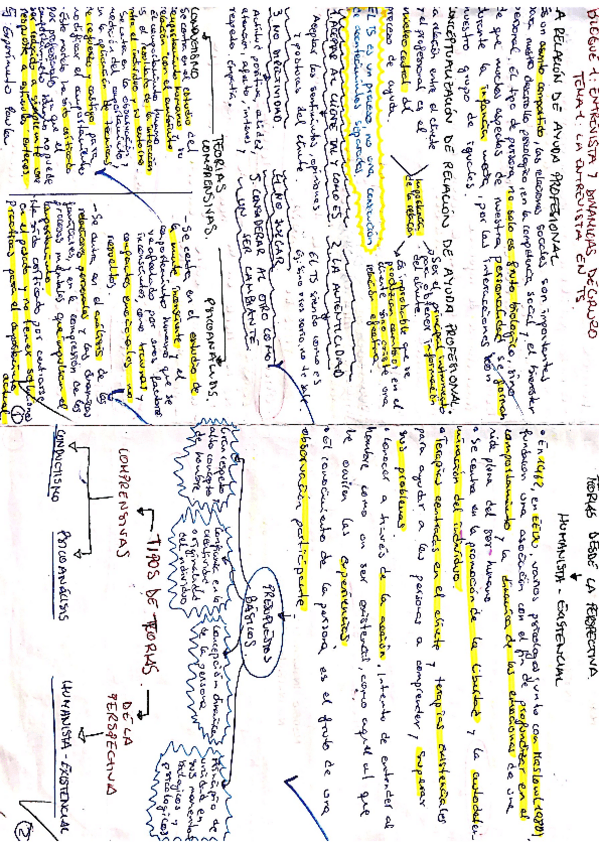 BLOQUE 1: ENTREVISTA Y DINÁMICAS DE GRUPO
TEMA 1: LA ENTREVISTA EN TS
A RELACIÓN DE AYUDA PROFESIONAL
Es un asunto compartido, las relaciones sociales son importantes
para nuestro desarrollo psicológico, en la competencia social, el bienestar
personal. El tipo de persona no solo es fruto biológico, sino
de que muchos aspectos de nuestra personalidad se forman
durante la infancia nuestra, por las interacciones con
nuestro grupo de iguales.
CONCEPTUALIZACIÓN DE RELACIÓN DE AYUDA PROFESIONAL
a relación entre el cliente
y el profesional es el
núcleo central del
proceso de ayuda.
importancia
de la relación
Ser el principal instrumento
para obtener información
Es improbable que se
produzca cambios en el
cliente sino existe una
relación efectiva
El TS es un proceso, no una consecución
de acontecimientos separados.
1. ACEPTAR AL CLIENTE TAL Y COMO ES
Aceptar los sentimientos, opiniones
y posturas del cliente
2. LA AUTENTICIDAD
El TS siendo como es
3. NO DIRECTIVIDAD
Actitud positiva, calidez,
atención, afecto, interés y
respeto, empatía,
4. NO JUZGAR
5. CONSIDERAR AL OTRO COMO
UN SER CAMBIANTE
TEORÍAS
COMPRENSIVAS
CONDUCTISMO
Se centra en el estudio del
comportamiento humano y su
relación con el ambiente
El comportamiento humano
es resultado de la interacción
entre el individuo y su entorno
Se centra en la observación y
medición del comportamiento,
y en la aplicación de técnicas
de refuerzo y castigo para
modificar el comportamiento
Este modelo ha sido criticado
EJ. Experimento Paulov
PSICOANÁLISIS
- Se centra en el estudio de
la mente inconsciente y el
comportamiento humano que se
ve afectado por factores
inconscientes como traumas y
conflictos emocionales no
resueltos
- Se centra en el análisis de las
relaciones personales y las dinámicas
familiares, y en la comprensión de los
procesos mentales que impulsan el
comportamiento
- Ha sido criticado por centrarse
en el pasado y no tener soluciones
prácticas para el comportamiento actual
①
TEORÍAS DESDE LA PERSPECTIVA
HUMANISTA - EXISTENCIAL
• En 1962, en EEUU, varios psicólogos junto con Maslow
fundaron una asociación con el fin de profundizar en el
comportamiento y la dinámica de las emociones de una
vida plena del ser humano
• Se centra en la promoción de la libertad y la autodeter-
minación del individuo
• Terapias centradas en el cliente y terapias existenciales
para ayudar a las personas a comprender y superar
sus problemas
• Conocer a través de la acción, intento de entender al
hombre como un ser existencial, como aquel al que
le ocurren las experiencias
• El conocimiento de la persona es el fruto de una
observación participante
PRESUPUESTOS
BÁSICOS
Gran respeto y
alto concepto
de hombre
Confianza en la
creatividad y
originalidad
del individuo
Concepción dinámica
de la persona
unidad en
sus momentos
biológicos y
psicológicos
TIPOS DE TEORÍAS
COMPRENSIVAS
CONDUCTISMO
PSICOANÁLISIS
DE LA
PERSPECTIVA
HUMANISTA - EXISTENCIAL
②